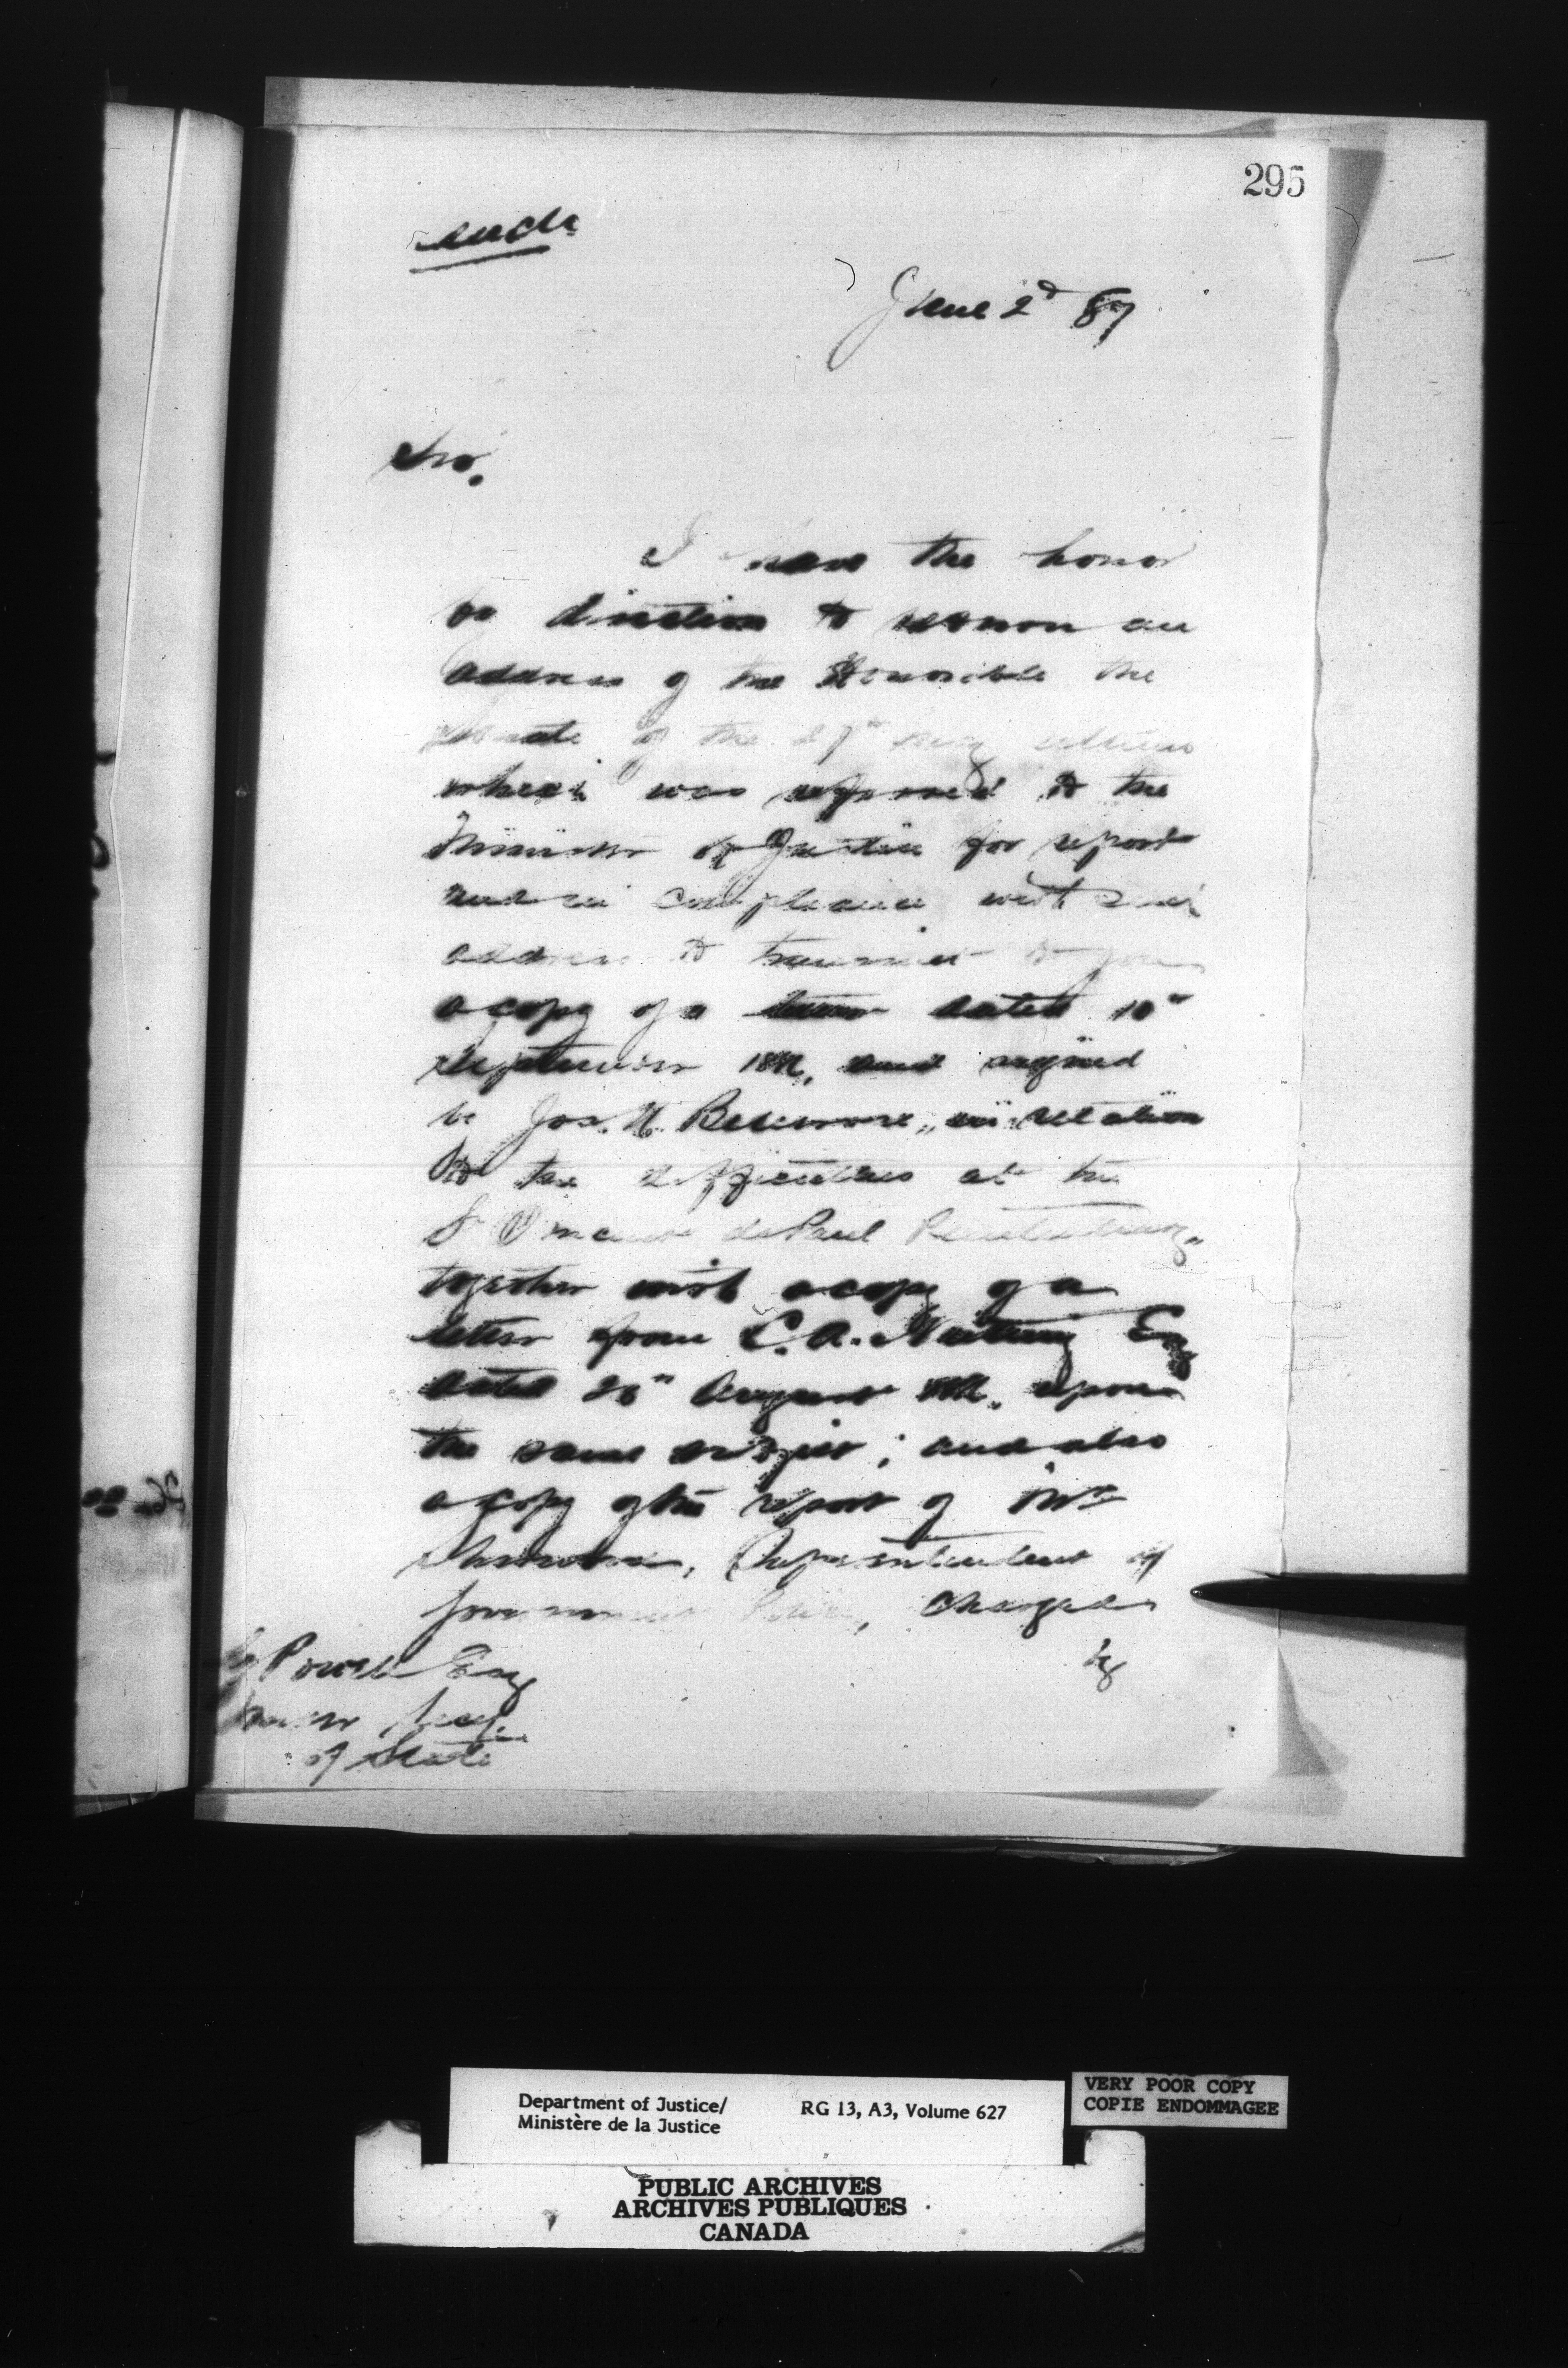 295
June 2d 87
Sir.
I have the honor
by direction to return an
address of the Honorable the
Senate of the 27th May ultimo
which was referred to the
Minister of Justice for report
and in compliance with said
address to transmit to you
a copy of a letter dated 10th
September and signed
by Jos. H. in relation
to the difficulties at the
St Vincent de Paul Penitentiary,
together with a copy of a
letter from C. A. Esq
dated 26th August upon
the same subject; and also
a copy of the report of Mr
Sherwood, Superintendent of
Government Police, charged
by
Powell Esq
Under Secy.
of State
Department of Justice/
Ministère de la Justice
RG 13, A3, Volume 627
VERY POOR COPY
COPIE ENDOMMAGEE
PUBLIC ARCHIVES
ARCHIVES PUBLIQUES
CANADA